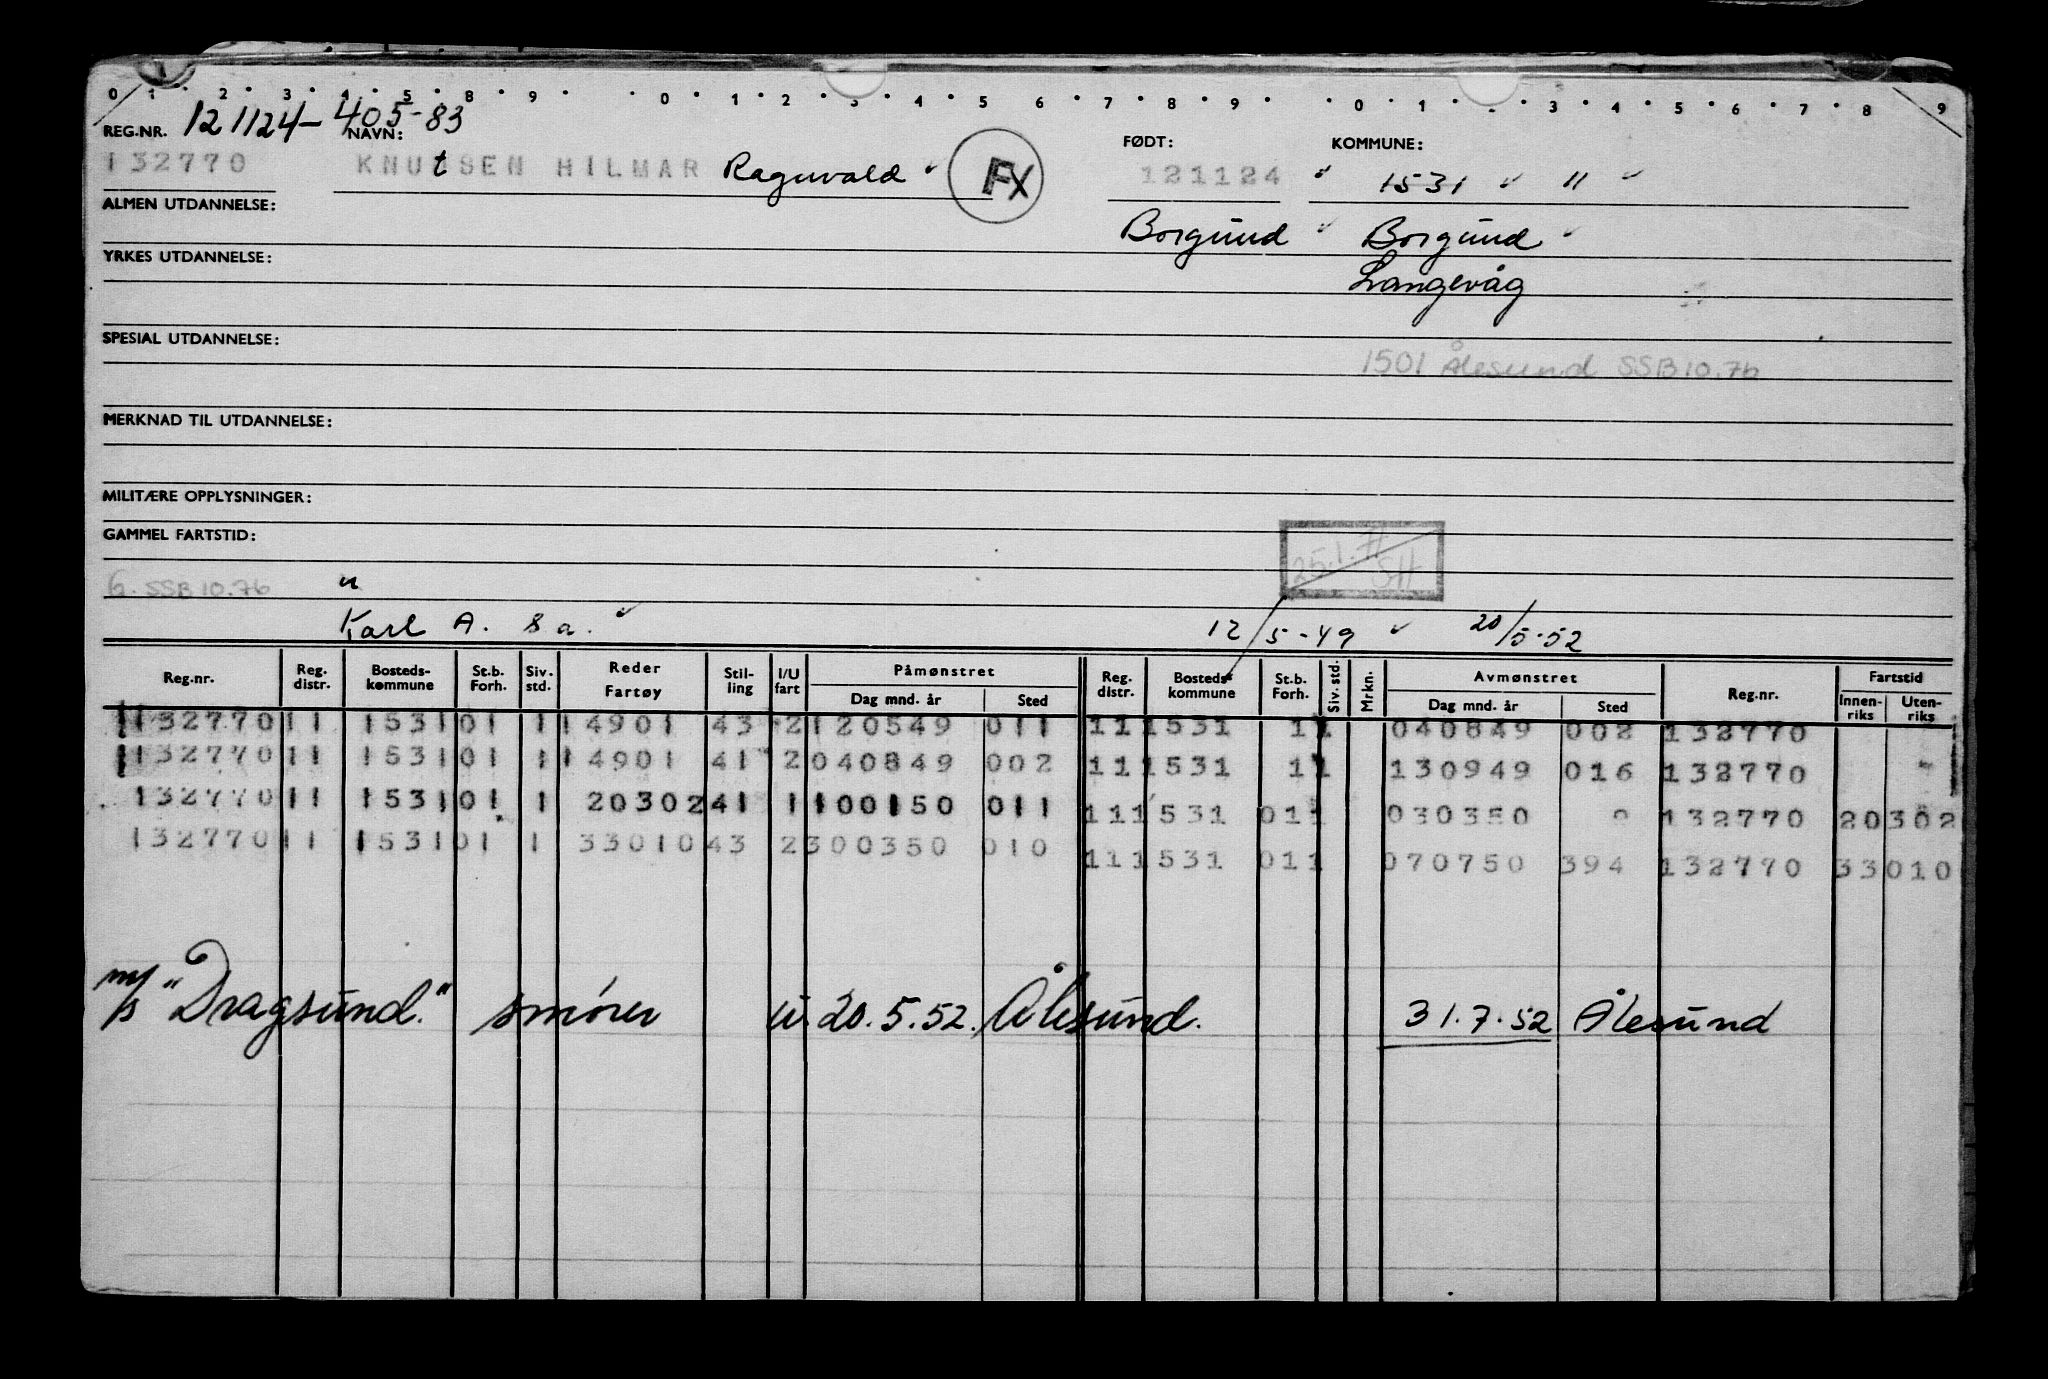 0 1 2 3 4 5 8 9 0 1 2 3 4 5 6 7 8 9 0 1 3 4 5 6 7 8 9
REG.NR. 121124-405-83 NAVN: FØDT: KOMMUNE:
132770 KNUtSEN HILMAR Ragnvald FX 121124 1531 11
ALMEN UTDANNELSE: Borgund Borgund
YRKES UTDANNELSE: Langevåg
SPESIAL UTDANNELSE:
1501 Ålesund SSB 10.76
MERKNAD TIL UTDANNELSE:
MILITÆRE OPPLYSNINGER:
GAMMEL FARTSTID:
25.1.71 SH
6. SSB 10.76 "
Karl A. s a. 12/5-49 20/5-52
Reg.nr. Reg. distr. Bosteds-kommune St.b. Forh. Siv. std. Reder Fartøy Stil-ling I/U fart Påmønstret Dag mnd. år Sted Reg. distr. Bosteds-kommune St.b. Forh. Siv. std. Mrkn. Avmønstret Dag mnd. år Sted Reg.nr. Fartstid Innen-riks Uten-riks
132770 11 1531 01 1 14901 43 2 120549 011 11 1531 1 1 040849 002 132770
132770 11 1531 01 1 14901 41 2 040849 002 11 1531 1 1 130949 016 132770
132770 11 1531 01 1 20302 41 1 100150 011 11 1531 01 1 030350 132770 20302
132770 11 1531 01 1 33010 43 2 300350 010 11 1531 01 1 070750 394 132770 33010
m/s "Dragsund." smører u. 20.5.52. Ålesund. 31.7.52 Ålesund